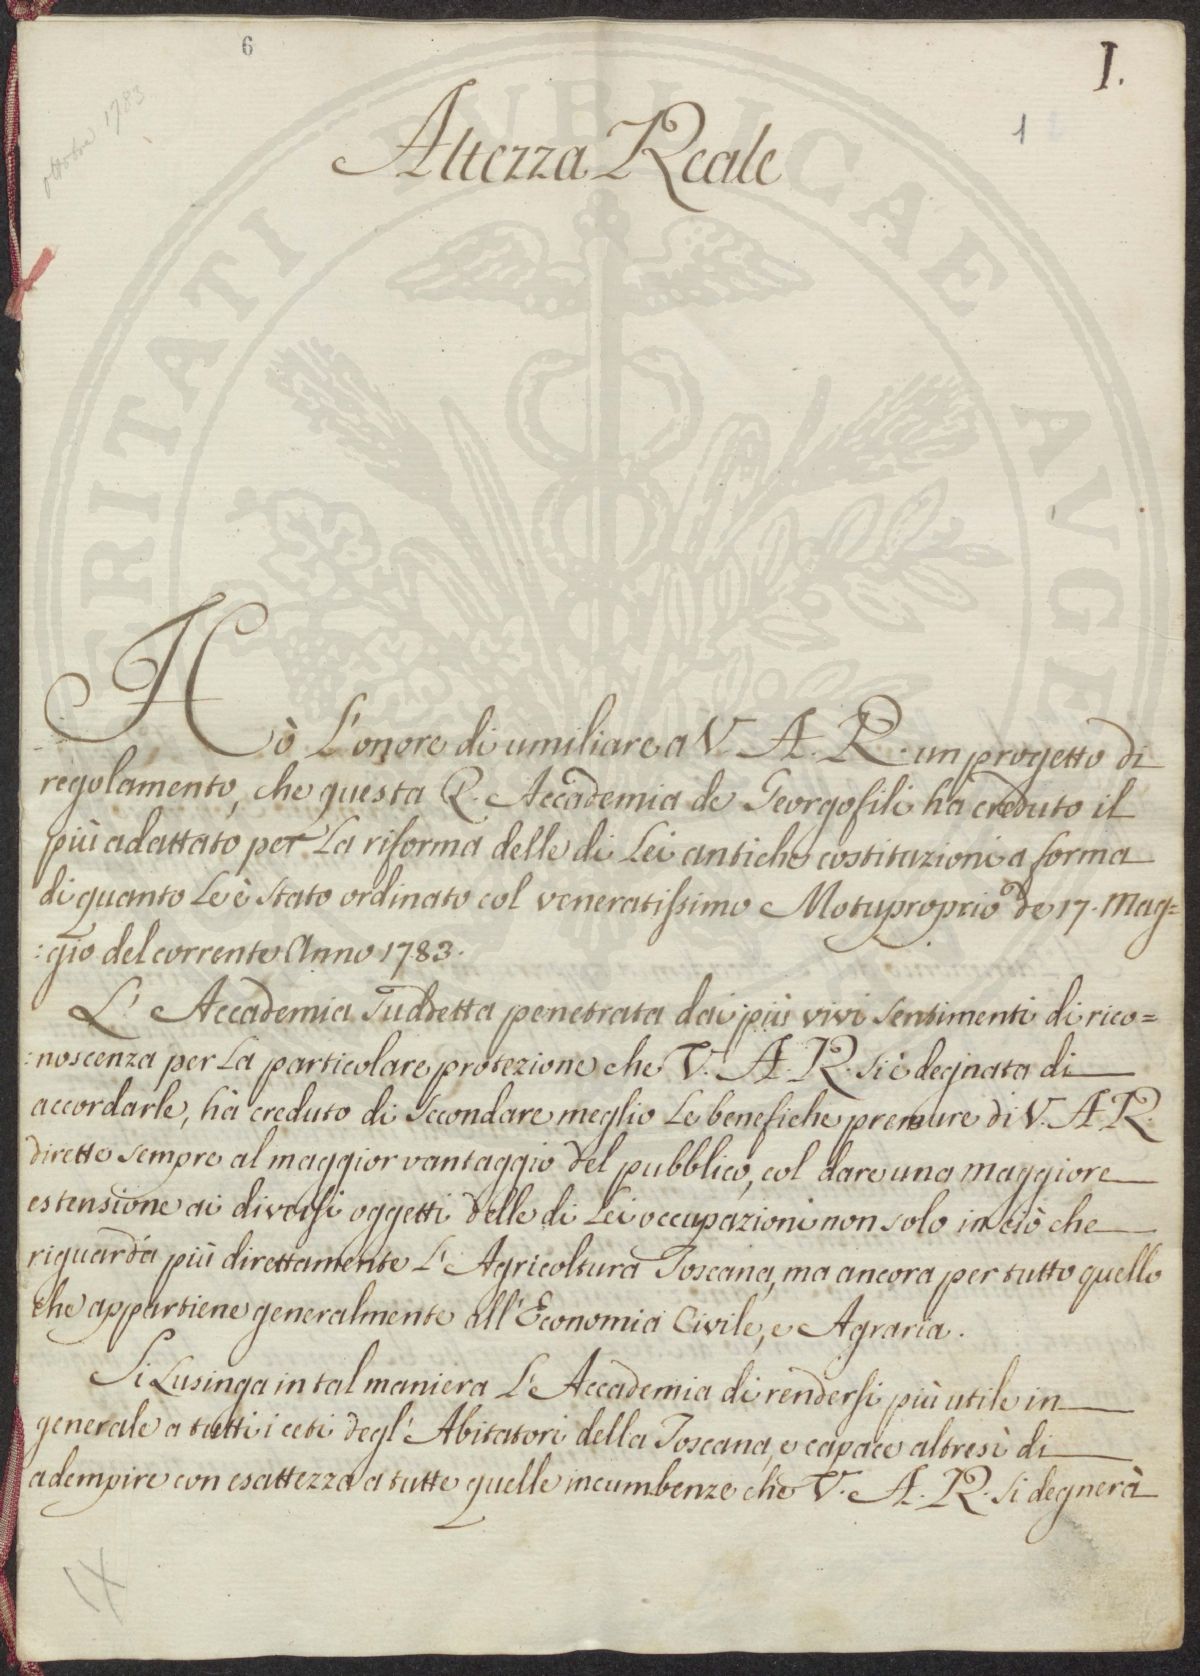 6
I.
1
ottobre 1783
Altezza Reale
PROSPERITATI PVBLICAE AVGE
Hò L'onore di umiliare a V. A. R. un progetto di
regolamento, che questa R. Accademia de Georgofili ha creduto il
più adattato per La riforma delle di Lei antiche costituzioni a forma
di quanto Le è stato ordinato col veneratissimo Motuproprio de 17. Mag=
:gio del corrente Anno 1783.
L' Accademia Suddetta penetrata dai più vivi sentimenti di rico=
:noscenza per La particolare protezione che V. A. R. si è degnata di
accordarle, hà creduto di secondare meglio Le benefiche premure di V. A. R.
dirette sempre al maggior vantaggio del pubblico, col dare una maggiore
estensione ai diversi oggetti delle di Lei occupazioni non solo in ciò che
riguarda più direttamente L' Agricoltura Toscana, ma ancora per tutto quello
che appartiene generalmente all' Economia Civile, e Agraria.
Si Lusinga in tal maniera L' Accademia di rendersi più utile in
generale a tutti i ceti degl' Abitatori della Toscana, e capace altresì di
adempire con esattezza a tutte quelle incumbenze che V. A. R. si degnerà
IX